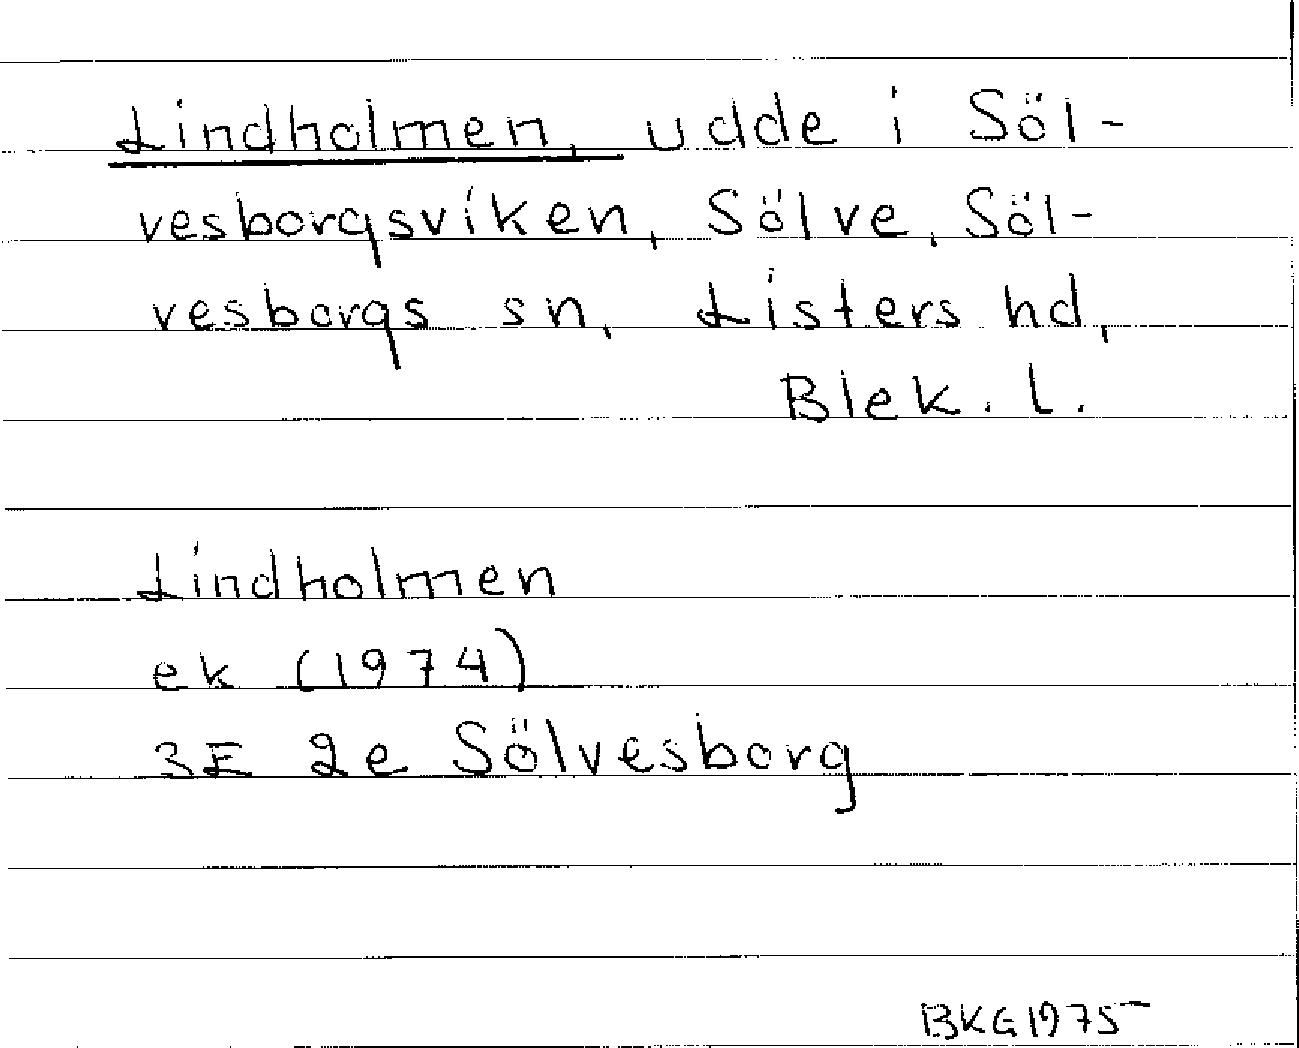 Lindholmen, udde i Söl-
vesborgsviken, Sölve, Söl-
vesborgs sn, Listers hd,
Blek. l.
Lindholmen
ek (1974)
3E 2e Sölvesborg
BKG 1975